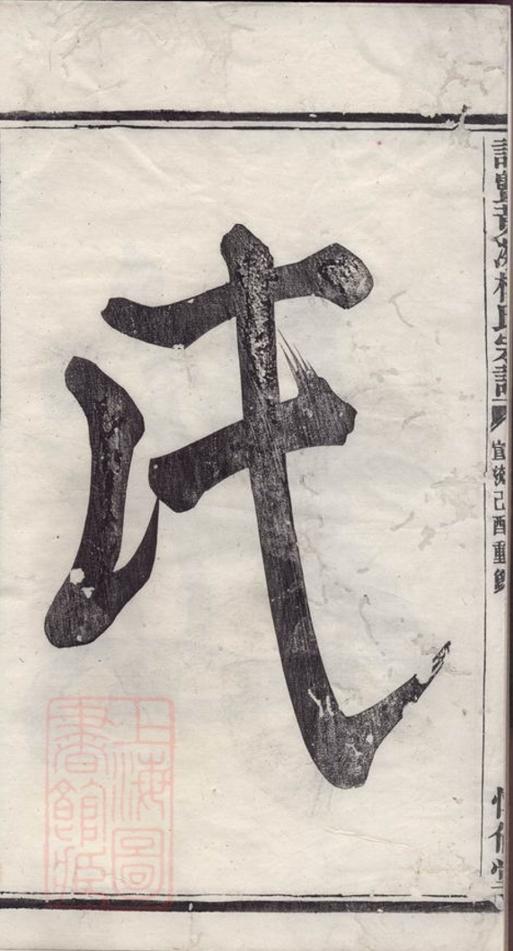 諸暨
氏宗譜
宣統己酉重
堂
氏
上海圖
書館藏